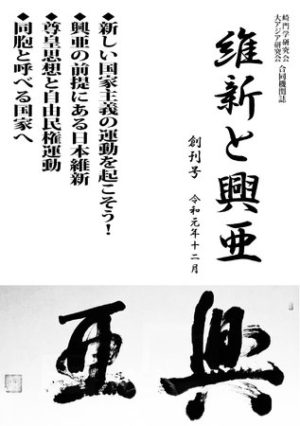 崎門学研究会
大アジア研究会
合同機関誌
維新と興亜
創刊号 令和元年十二月
◆新しい国家主義の運動を起こそう!
◆興亜の前提にある日本維新
◆尊皇思想と自由民権運動
◆同胞と呼べる国家へ
興亜